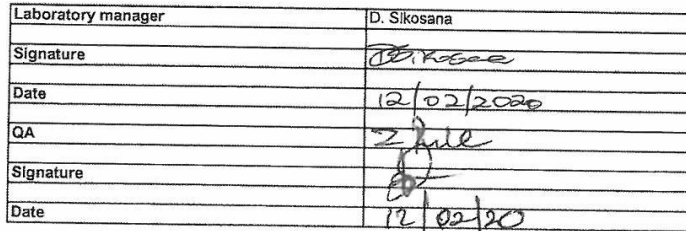 Laboratory manager D. Sikosana
Signature
Date 12/02/2020
QA Z
Signature
Date 12/02/20